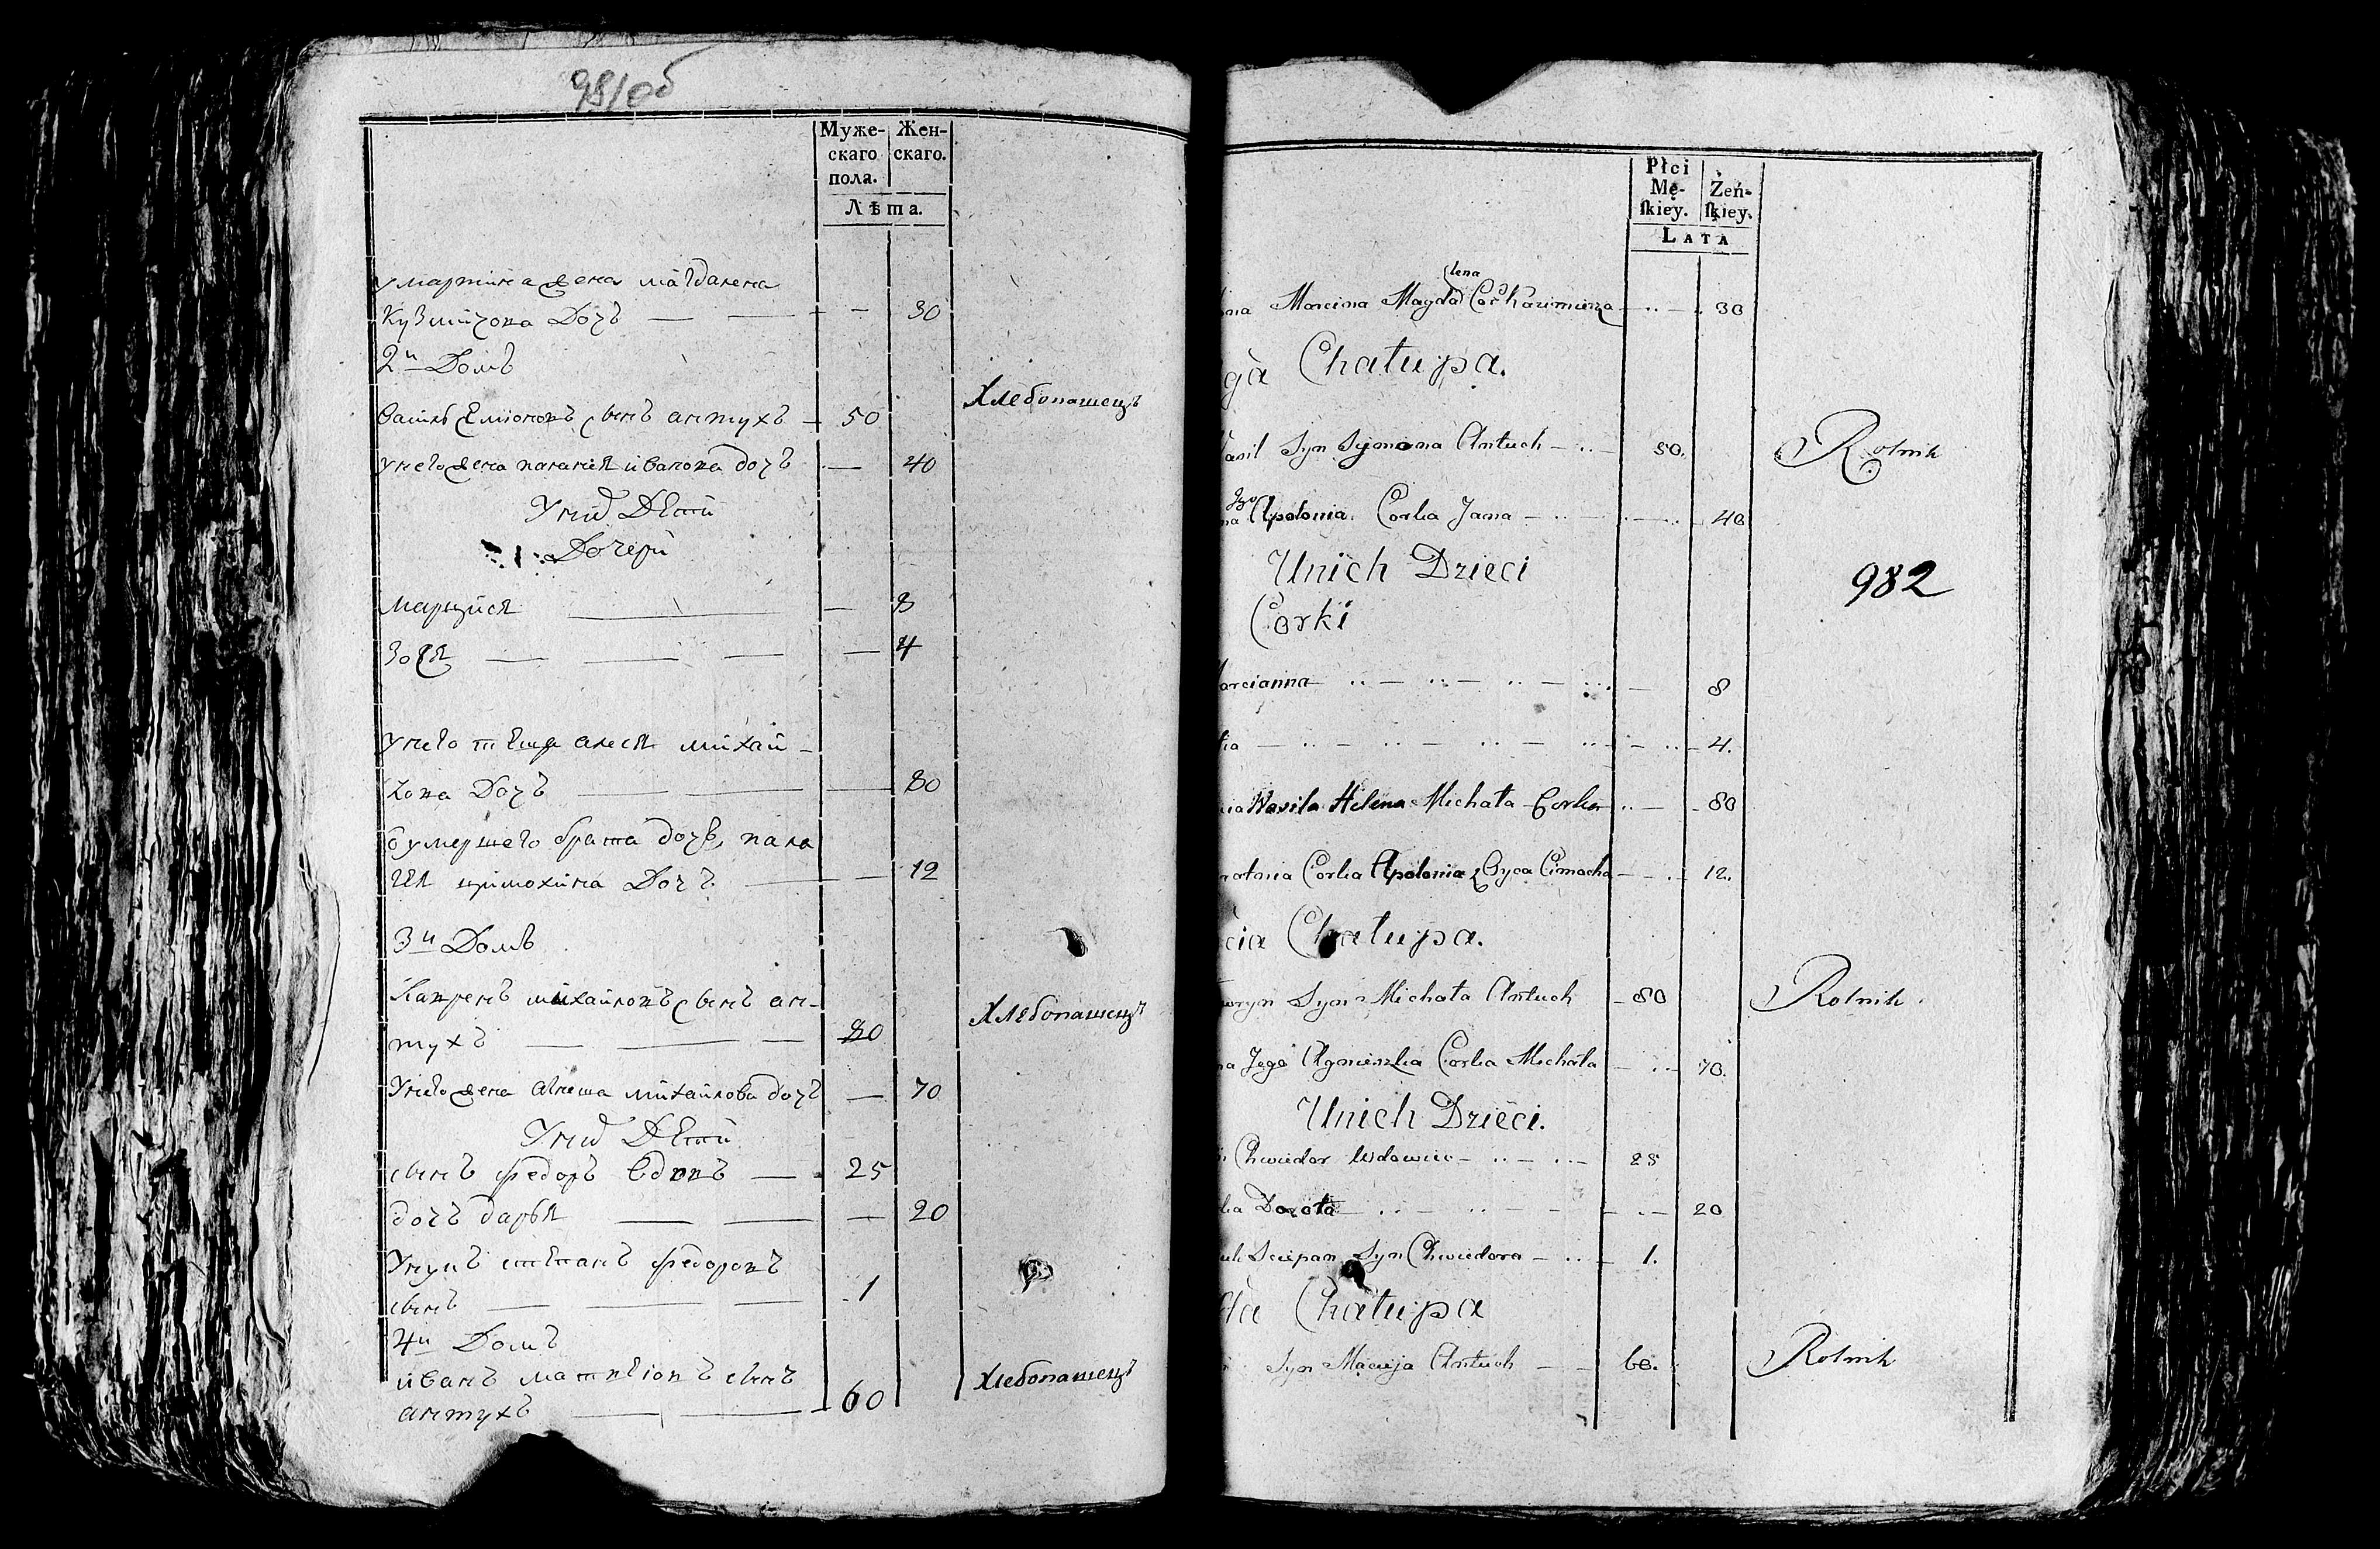 981об
Муже- Жен-
скаго скаго.
пола.
Лѣта.
у мартина жена магдалена
Кузмiтова Дочъ — — - - 30
2й Домъ
василь Семiоновъ сынъ антухъ - 50 Хлебопашецъ
унего жена паланея иванова дочъ — 40
Уних Дѣти
Дочери
марцися — — 8
зося — — — — 4
унего теща алеся михай-
лова Дочъ — — — 80
б умершего брата дочъ, пала
гея цiмохина Дочъ — — 12
3й Домъ
михайловъ сынъ ан-
тухъ — — — 80 Хлебопашецъ
Унего жена михайлова дочъ — 70
Уних Дѣти
сынъ федоръ вдовъ — - 25
дочъ дарья — — — 20
Унукъ степанъ федоровъ
сынъ — — — - 1
4й Домъ
иванъ сынъ
антухъ — — - 60 Хлебопашецъ
Płci
Mę- Żeń-
skiey. skiey.
LATA
lena
ona Marcina Magda Cor Kazimierza — .. — . 30
ga Chałupa.
asil Syn Symona Antuch — .. — 50. Rolnik
Jgo
na Apolonia Corka Jana — .. — . — .. - 40
Unich Dzieci
Corki
982
arcianna — .. — .. — .. — ... — 8
fia — .. — .. — .. — .. — .. - 4.
cia Wasila Helena Michała Corka .. — - 80
ratnia Corka Apolonia z Oyca Cimocha — - . - 12.
cia Chałupa.
woryn Syn Michała Antuch - 80 Rolnik
na Jego Agnieszka Corka Michała — .. - 70.
Unich Dzieci.
Chwiedor Wdowiec — .. — .. — 25
ka Dorota — .. — .. — - — . — 20
uk Sciepan Syn Chwiedora — .. — 1.
ta Chałupa
Syn Macieja Antuch — — 60. Rolnik